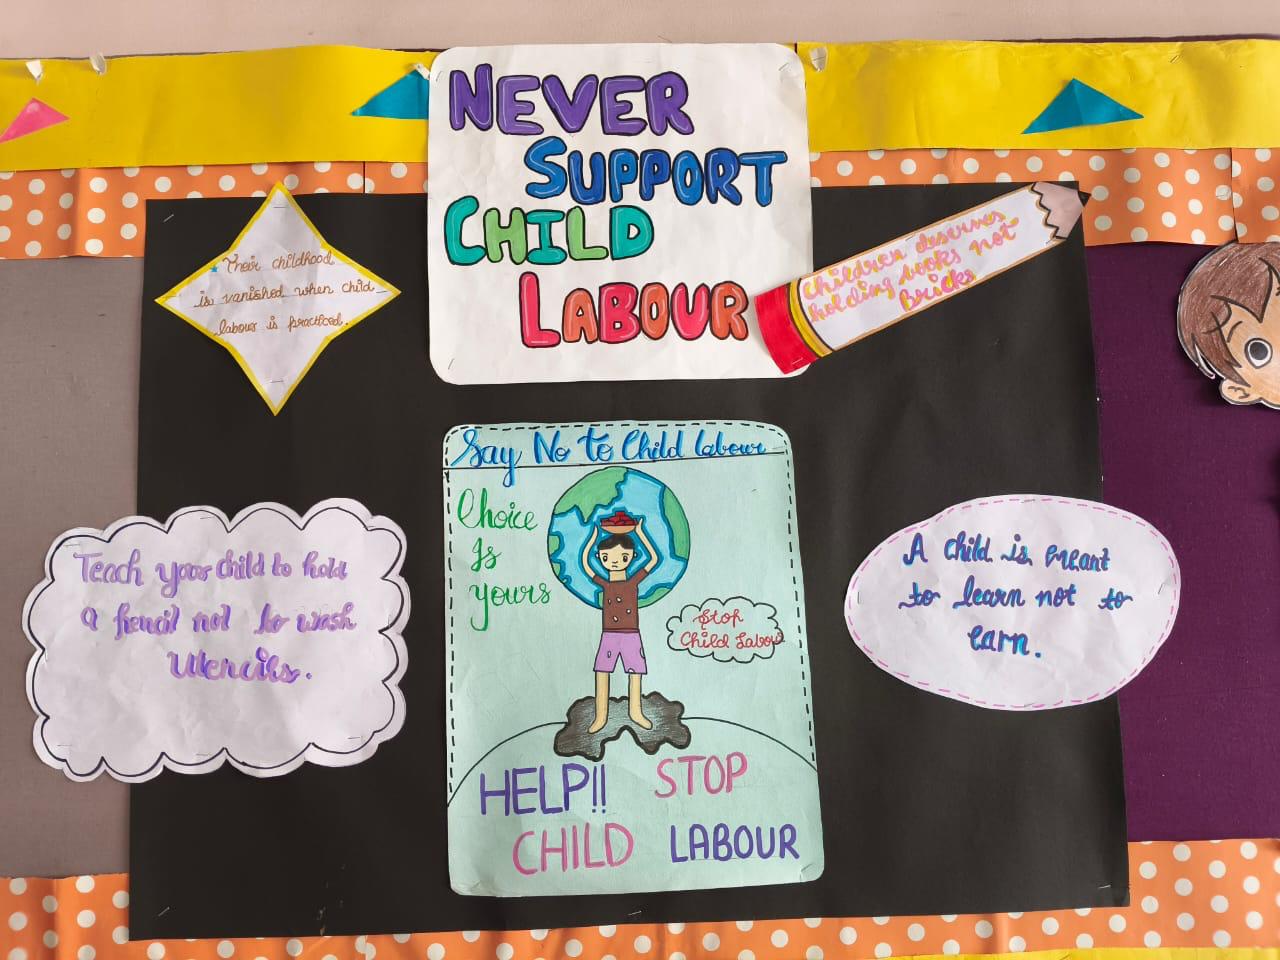 NEVER
SUPPORT
CHILD
LABOUR
Their childhood
is vanished when child
labour is practiced.
Children deserves
holding books not
Bricks
Say No To Child Labour
Choice
Is
yours
Stop
Child Labour
HELP!! STOP
CHILD LABOUR
Teach your child to hold
a pencil not to wash
Utencils.
A child is meant
to learn not to
earn.